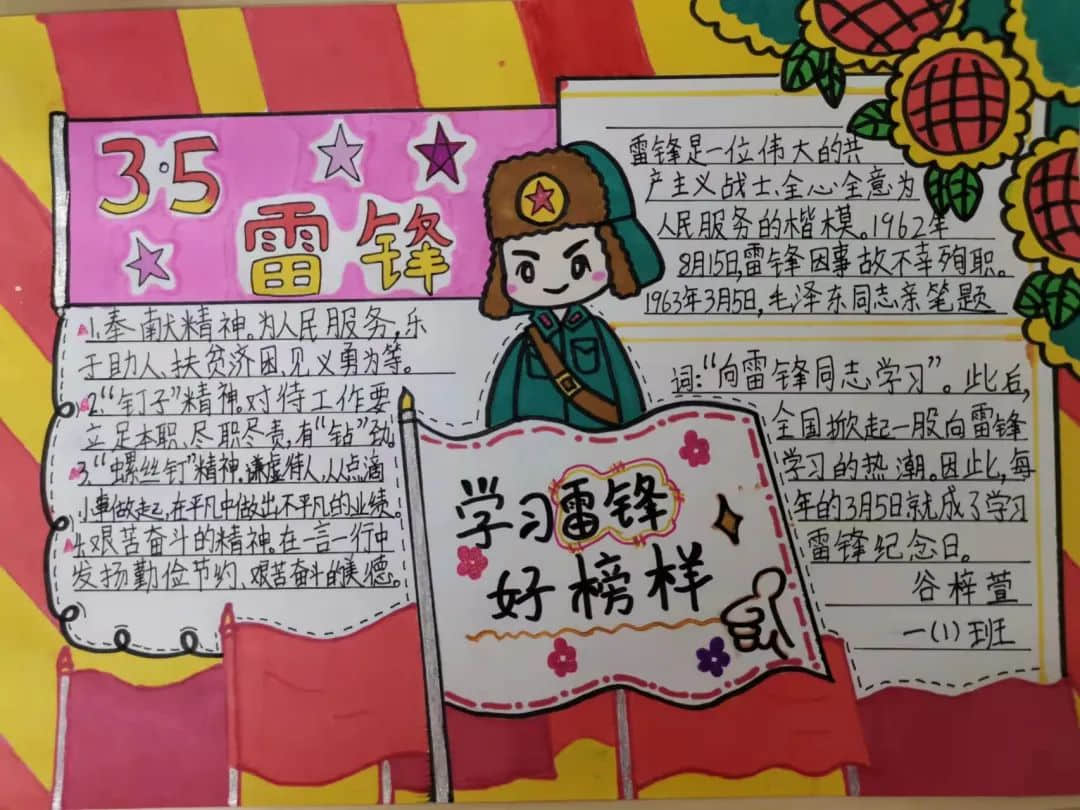 3·5
雷锋
1.奉献精神。为人民服务,乐
于助人、扶贫济困、见义勇为等。
2.“钉子”精神。对待工作要
立足本职、尽职尽责,有“钻”劲。
3.“螺丝钉”精神。谦虚待人,从点滴
小事做起,在平凡中做出不平凡的业绩。
4.艰苦奋斗的精神。在一言一行中
发扬勤俭节约、艰苦奋斗的美德。
学习雷锋
好榜样
雷锋是一位伟大的共
产主义战士、全心全意为
人民服务的楷模。1962年
8月15日,雷锋因事故不幸殉职。
1963年3月5日,毛泽东同志亲笔题
词:“向雷锋同志学习”。此后,
全国掀起一股向雷锋
学习的热潮。因此,每
年的3月5日就成了学习
雷锋纪念日。
谷梓萱
一(1)班